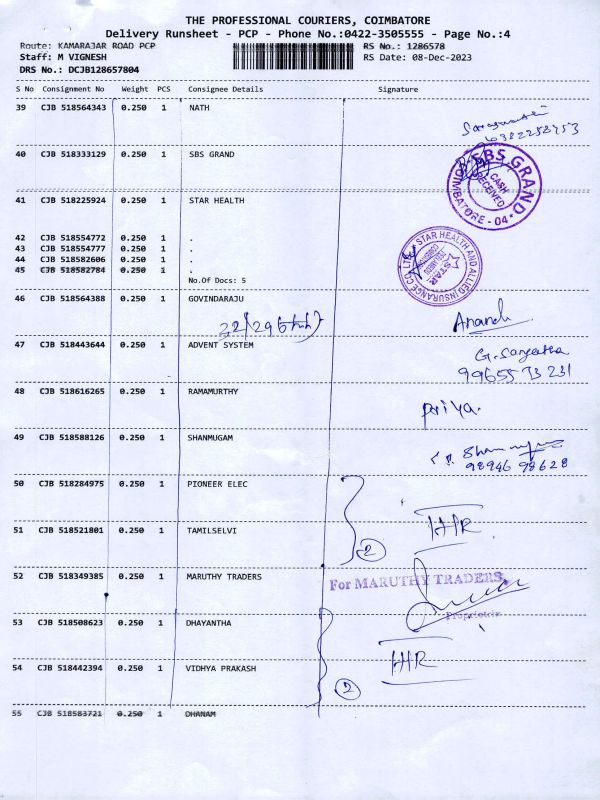 THE PROFESSIONAL COURIERS, COIMBATORE
Delivery Runsheet - PCP - Phone No.:0422-3505555 - Page No.:4
Route: KAMARAJAR ROAD PCP RS No.: 1286578
Staff: M VIGNESH RS Date: 08-Dec-2023
DRS No.: DCJB128657804
S No Consignment No Weight PCS Consignee Details Signature
39 CJB 518564343 0.250 1 NATH
6382258753
40 CJB 518333129 0.250 1 SBS GRAND
SBS GRAND
CASH RECEIVED
COIMBATORE - 04
41 CJB 518225924 0.250 1 STAR HEALTH
STAR HEALTH AND ALLIED INSURANCE CO. LTD
STAR
42 CJB 518554772 0.250 1 .
43 CJB 518554777 0.250 1 .
44 CJB 518582606 0.250 1 .
45 CJB 518582784 0.250 1 .
No.Of Docs: 5
46 CJB 518564388 0.250 1 GOVINDARAJU
Anandi
47 CJB 518443644 0.250 1 ADVENT SYSTEM
G. Sangeetha
99655 73 231
48 CJB 518616265 0.250 1 RAMAMURTHY
priya.
49 CJB 518588126 0.250 1 SHANMUGAM
98946 98628
50 CJB 518284975 0.250 1 PIONEER ELEC
51 CJB 518521801 0.250 1 TAMILSELVI
2
52 CJB 518349385 0.250 1 MARUTHY TRADERS
For MARUTHY TRADERS,
Proprietrix
53 CJB 518508623 0.250 1 DHAYANTHA
54 CJB 518442394 0.250 1 VIDHYA PRAKASH
2
55 CJB 518583721 0.250 1 DHANAM